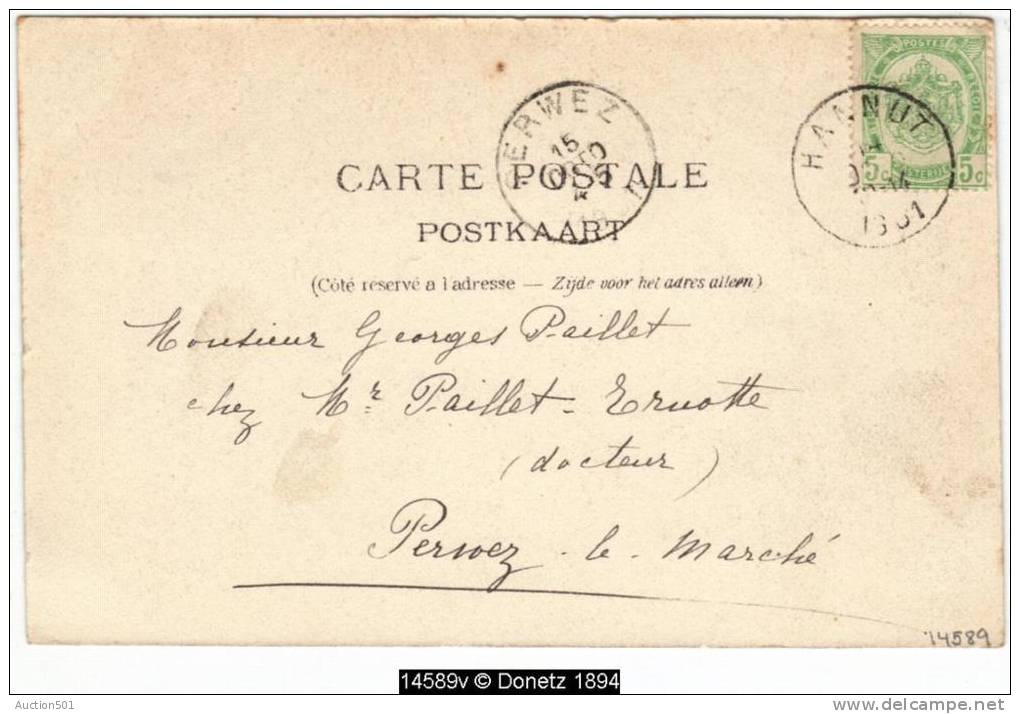 POSTES
5c 5c
HANNUT
1901
PERWEZ
15
CARTE POSTALE
POSTKAART
(Côté réservé a l'adresse — Zijde voor het adres alleen)
Monsieur Georges Paillet
chez Mr Paillet-Ernotte
(docteur)
Perwez-le-Marché
14589
14589v © Donetz 1894
Auction501
delcampe.net